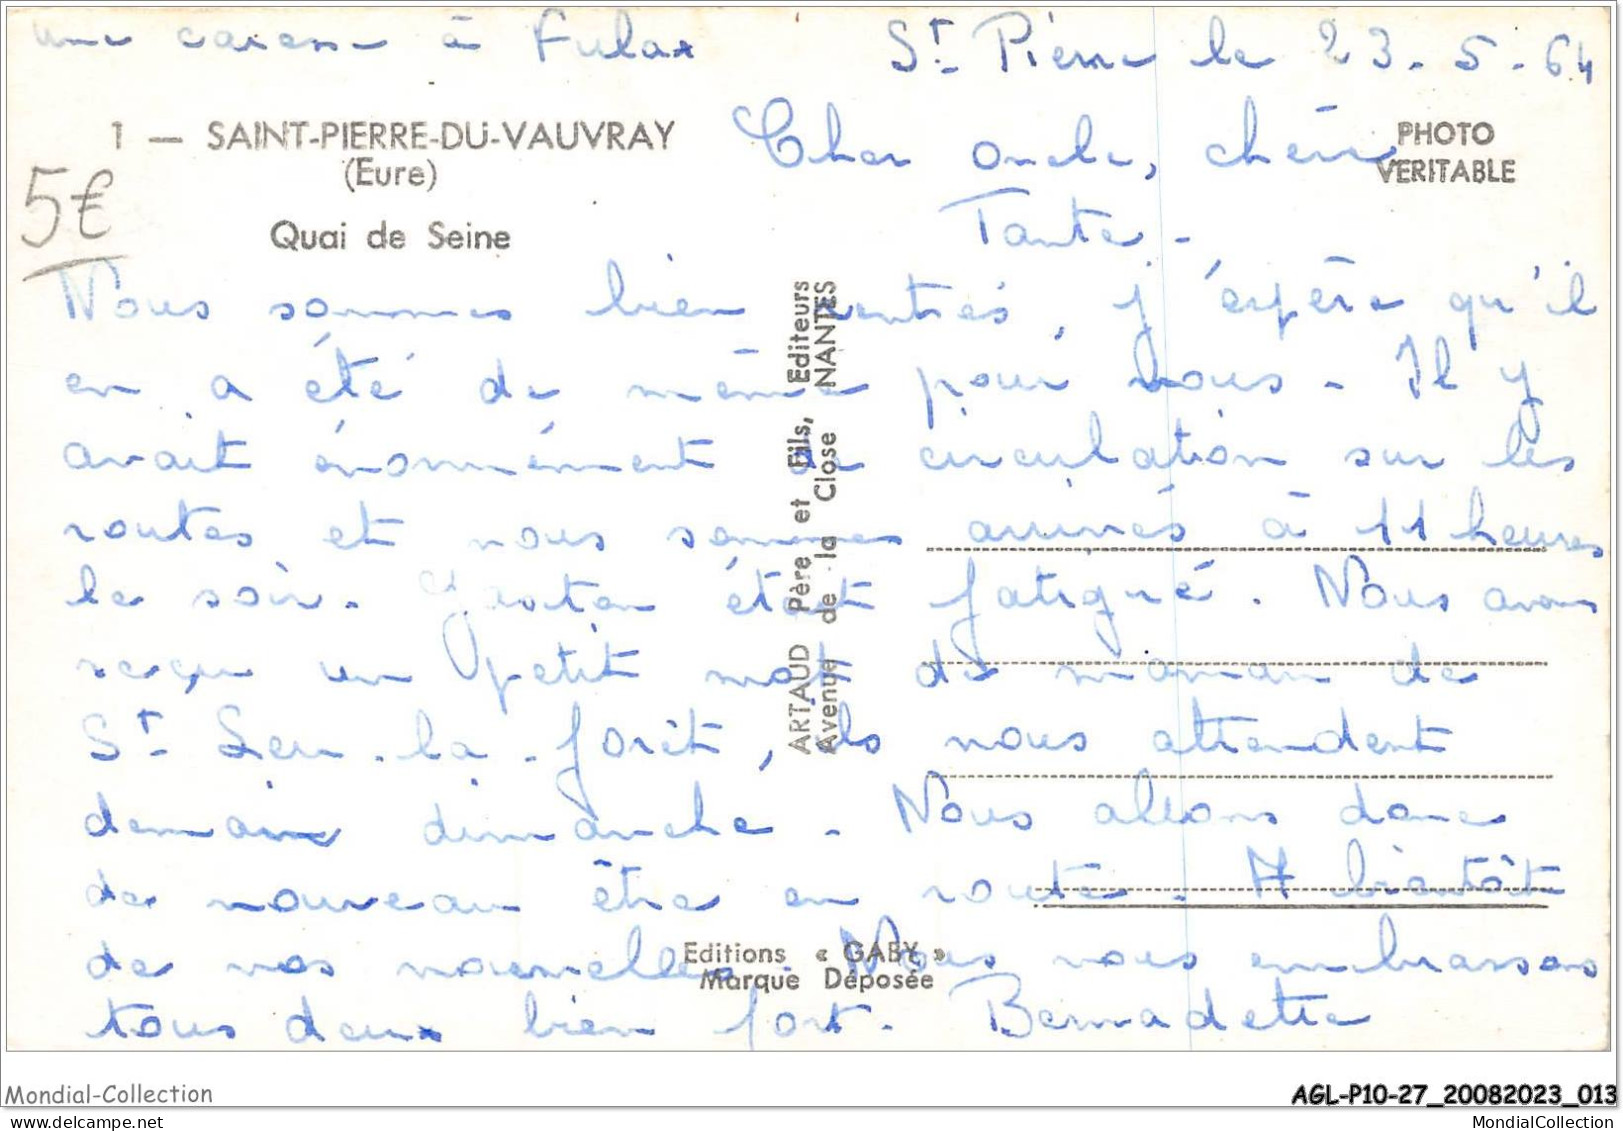 une caresse à Fulax
St. Pierre le 23-5-64
1 — SAINT-PIERRE-DU-VAUVRAY
(Eure)
Quai de Seine
PHOTO
VERITABLE
5€
Cher oncle, chère
Tante -
Nous sommes bien rentrés, j'espère qu'il
en a été de même pour vous - Il y
avait énormément de circulation sur les
routes et nous sommes arrivés à 11 heures
le soir. Gaston était fatigué. Nous avons
reçu un petit mot de maman de
St. Leu-la-forêt, ils nous attendent
demain dimanche. Nous allons donc
de nouveau être en route. A bientôt
de vos nouvelles. Nous vous embrassons
tous deux bien fort. Bernadette
ARTAUD Père et Fils, Editeurs
Avenue de la Close NANTES
Editions « GABY »
Marque Déposée
Mondial-Collection
AGL-P10-27_20082023_013
MondialCollection
MondialCollection.com